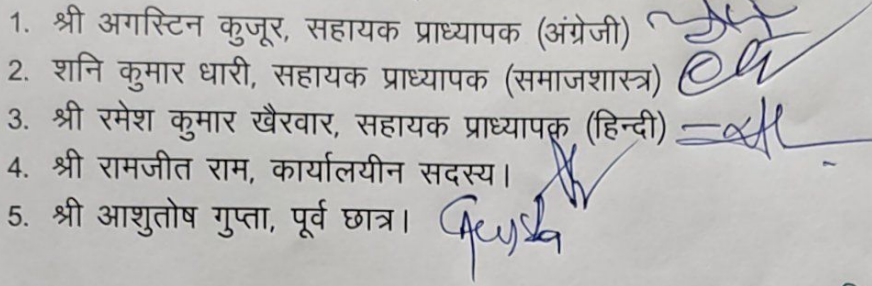 1. श्री अगस्टिन कुजूर, सहायक प्राध्यापक (अंग्रेजी)
2. शनि कुमार धारी, सहायक प्राध्यापक (समाजशास्त्र)
3. श्री रमेश कुमार खैरवार, सहायक प्राध्यापक (हिन्दी)
4. श्री रामजीत राम, कार्यालयीन सदस्य।
5. श्री आशुतोष गुप्ता, पूर्व छात्र।